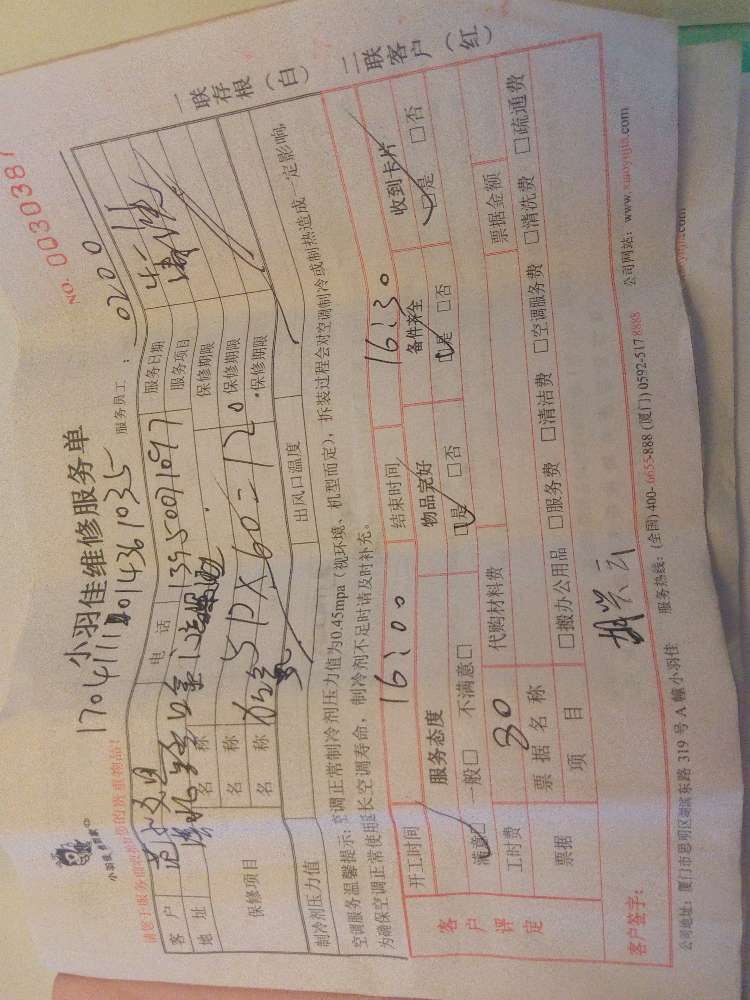 NO. 0030387
小羽佳维修服务单
170411110014361035
服务员工： 0200
小羽佳
请您于服务前收好您的贵重物品！
客户 电话 13950091097 服务日期
地址 服务项目
保修项目 名称 保修期限
名称 5P×60=120 保修期限
名称 保修期限
制冷剂压力值 出风口温度
空调服务温馨提示：空调正常制冷剂压力值为0.45mpa（视环境、机型而定），拆装过程会对空调制冷或制热造成一定影响，
为确保空调正常使用延长空调寿命，制冷剂不足时请及时补充。
开工时间 16:00 结束时间 16:30
客户评定
服务态度 物品完好 备件齐全 收到卡片
满意□ 一般□ 不满意□ □是 □否 □是 □否 □是 □否
工时费 80 代购材料费 票据金额
票据 票据名称
项目 □搬办公用品 □服务费 □清洁费 □空调服务费 □清洗费 □疏通费
客户签字：
公司地址：厦门市思明区湖滨东路 319 号 A 幢小羽佳 服务热线：(全国) 400-6655-888 (厦门) 0592-517 8888 公司网站：www.xiaoyujia.com
一联存根（白） 二联客户（红）